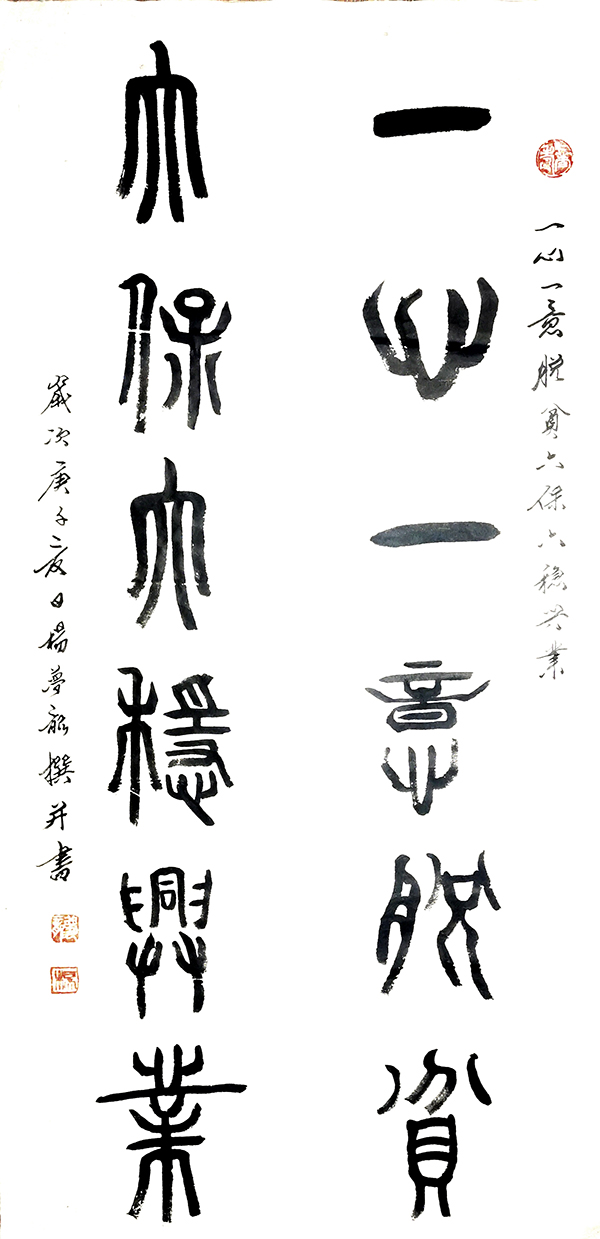 一心一意脱贫六保六稳兴业
一心一意脫貧
六保六穩興業
歲次庚子夏日楊夢龍撰并書